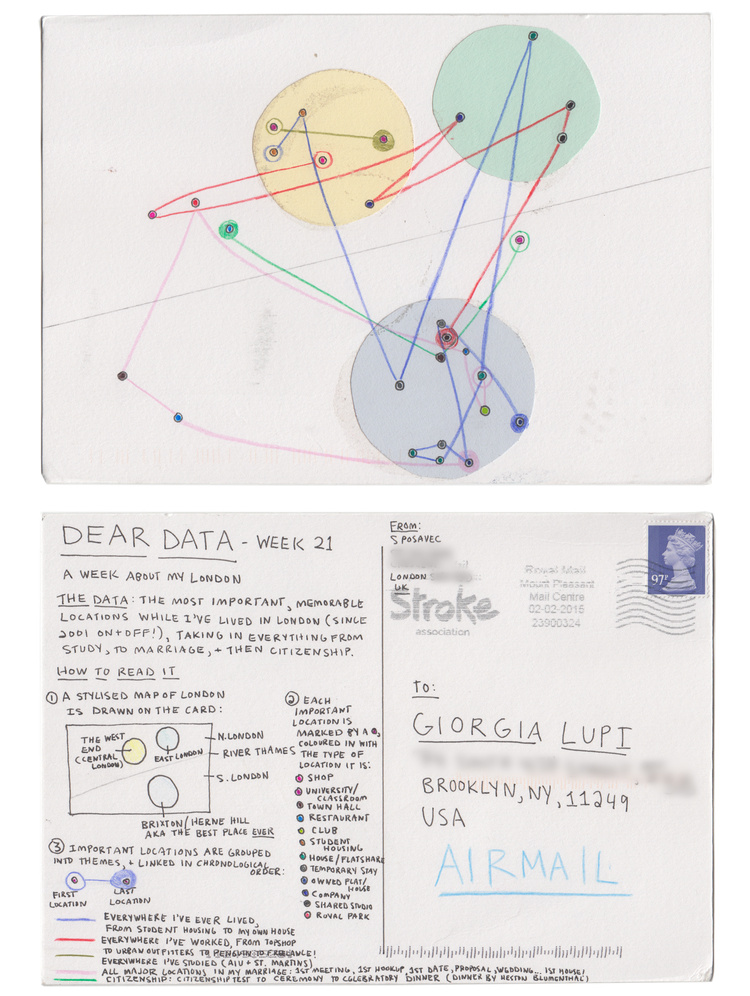 DEAR DATA - WEEK 21
A WEEK ABOUT MY LONDON
THE DATA: THE MOST IMPORTANT, MEMORABLE
LOCATIONS WHILE I'VE LIVED IN LONDON (SINCE
2001 ON + OFF!), TAKING IN EVERYTHING FROM
STUDY, TO MARRIAGE, + THEN CITIZENSHIP.
HOW TO READ IT
① A STYLISED MAP OF LONDON
IS DRAWN ON THE CARD:
THE WEST
END
(CENTRAL
LONDON)
EAST LONDON
N. LONDON
RIVER THAMES
S. LONDON
BRIXTON/HERNE HILL
AKA THE BEST PLACE EVER
② EACH
IMPORTANT
LOCATION IS
MARKED BY A
COLOURED IN WITH
THE TYPE OF
LOCATION IT IS:
SHOP
UNIVERSITY/
CLASSROOM
TOWN HALL
RESTAURANT
CLUB
STUDENT
HOUSING
HOUSE/FLATSHARE
TEMPORARY STAY
OWNED FLAT/
HOUSE
COMPANY
SHARED STUDIO
ROYAL PARK
③ IMPORTANT LOCATIONS ARE GROUPED
INTO THEMES, + LINKED IN CHRONOLOGICAL
ORDER:
FIRST
LOCATION
LAST
LOCATION
EVERYWHERE I'VE EVER LIVED,
FROM STUDENT HOUSING TO MY OWN HOUSE
EVERYWHERE I'VE WORKED, FROM TOPSHOP
TO URBAN OUTFITTERS TO PENGUIN TO FREELANCE!
EVERYWHERE I'VE STUDIED (AIU + ST. MARTINS)
ALL MAJOR LOCATIONS IN MY MARRIAGE: 1ST MEETING, 1ST HOOKUP, 1ST DATE, PROPOSAL, WEDDING... 1ST HOUSE!
CITIZENSHIP: CITIZENSHIP TEST TO CEREMONY TO CELEBRATORY DINNER (DINNER BY HESTON BLUMENTHAL)
FROM:
S POSAVEC
LONDON
UK
Royal Mail
Mount Pleasant
Mail Centre
02-02-2015
23900324
Stroke
association
97P
TO:
GIORGIA LUPI
BROOKLYN, NY, 11249
USA
AIRMAIL